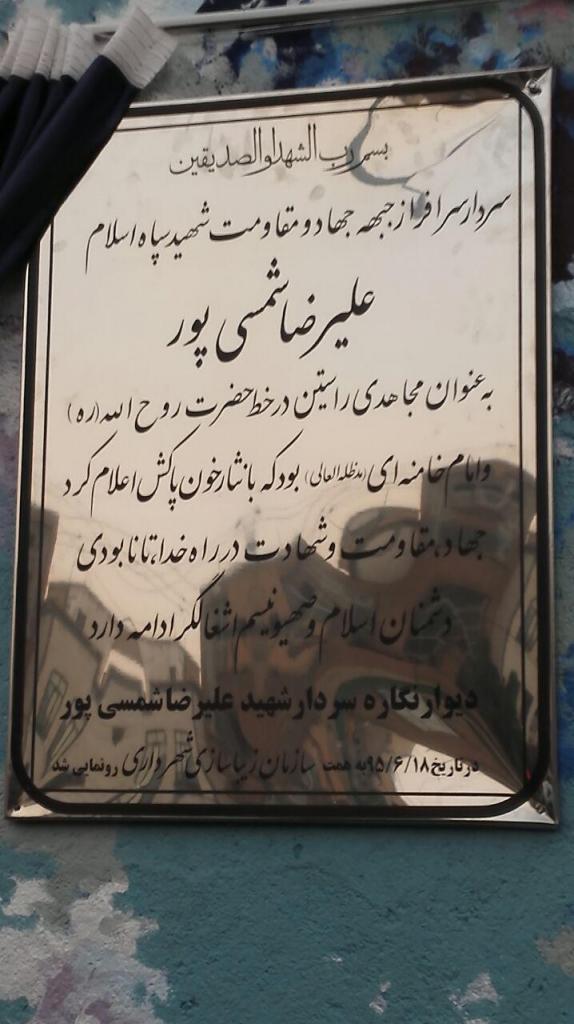 بسم رب الشهدا و الصدیقین
سردار سرافراز جبهه جهاد و مقاومت شهید سپاه اسلام
علیرضا شمسی پور
به عنوان مجاهدی راستین در خط حضرت روح الله (ره)
و امام خامنه ای (مدظله العالی) بود که با نثار خون پاکش اعلام کرد
جهاد، مقاومت و شهادت در راه خدا، تا نابودی
دشمنان اسلام و صهیونیسم اشغالگر ادامه دارد
دیوارنگاره سردار شهید علیرضا شمسی پور
در تاریخ ۹۵/۶/۱۸ به همت سازمان زیباسازی شهرداری رونمایی شد